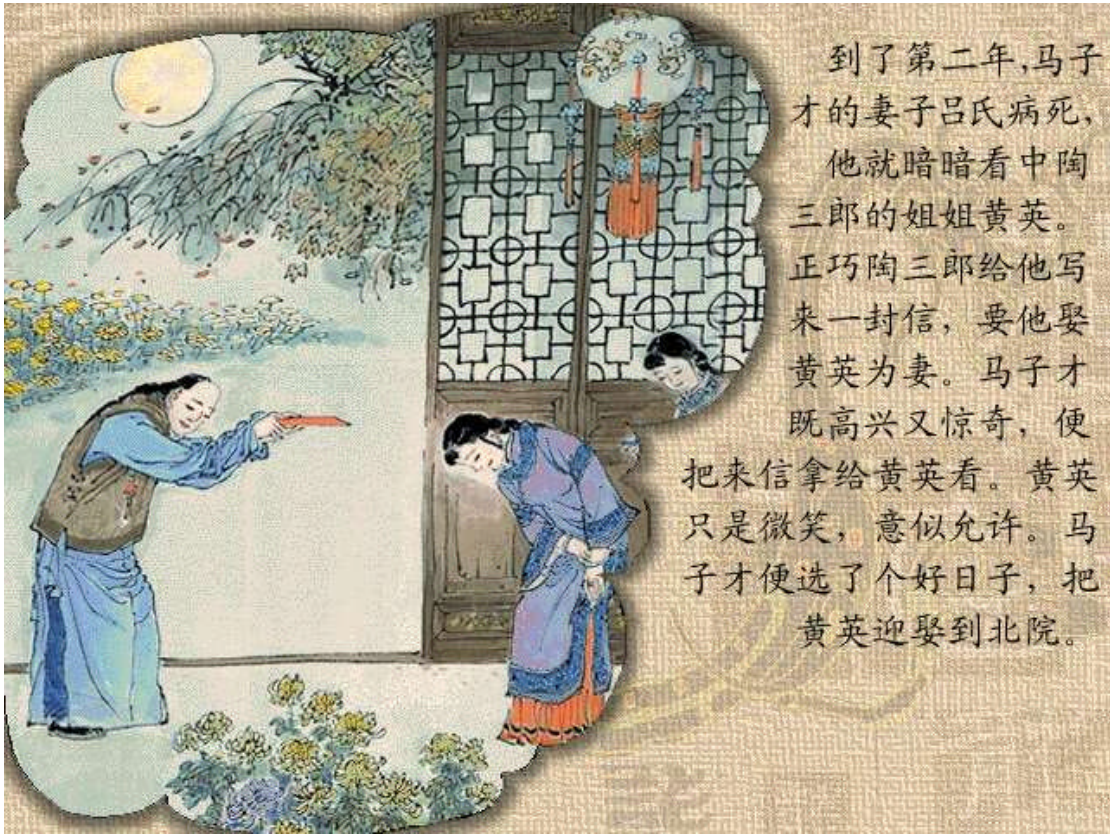 到了第二年,马子
才的妻子吕氏病死,
他就暗暗看中陶
三郎的姐姐黄英。
正巧陶三郎给他写
来一封信，要他娶
黄英为妻。马子才
既高兴又惊奇，便
把来信拿给黄英看。黄英
只是微笑，意似允许。马
子才便选了个好日子，把
黄英迎娶到北院。